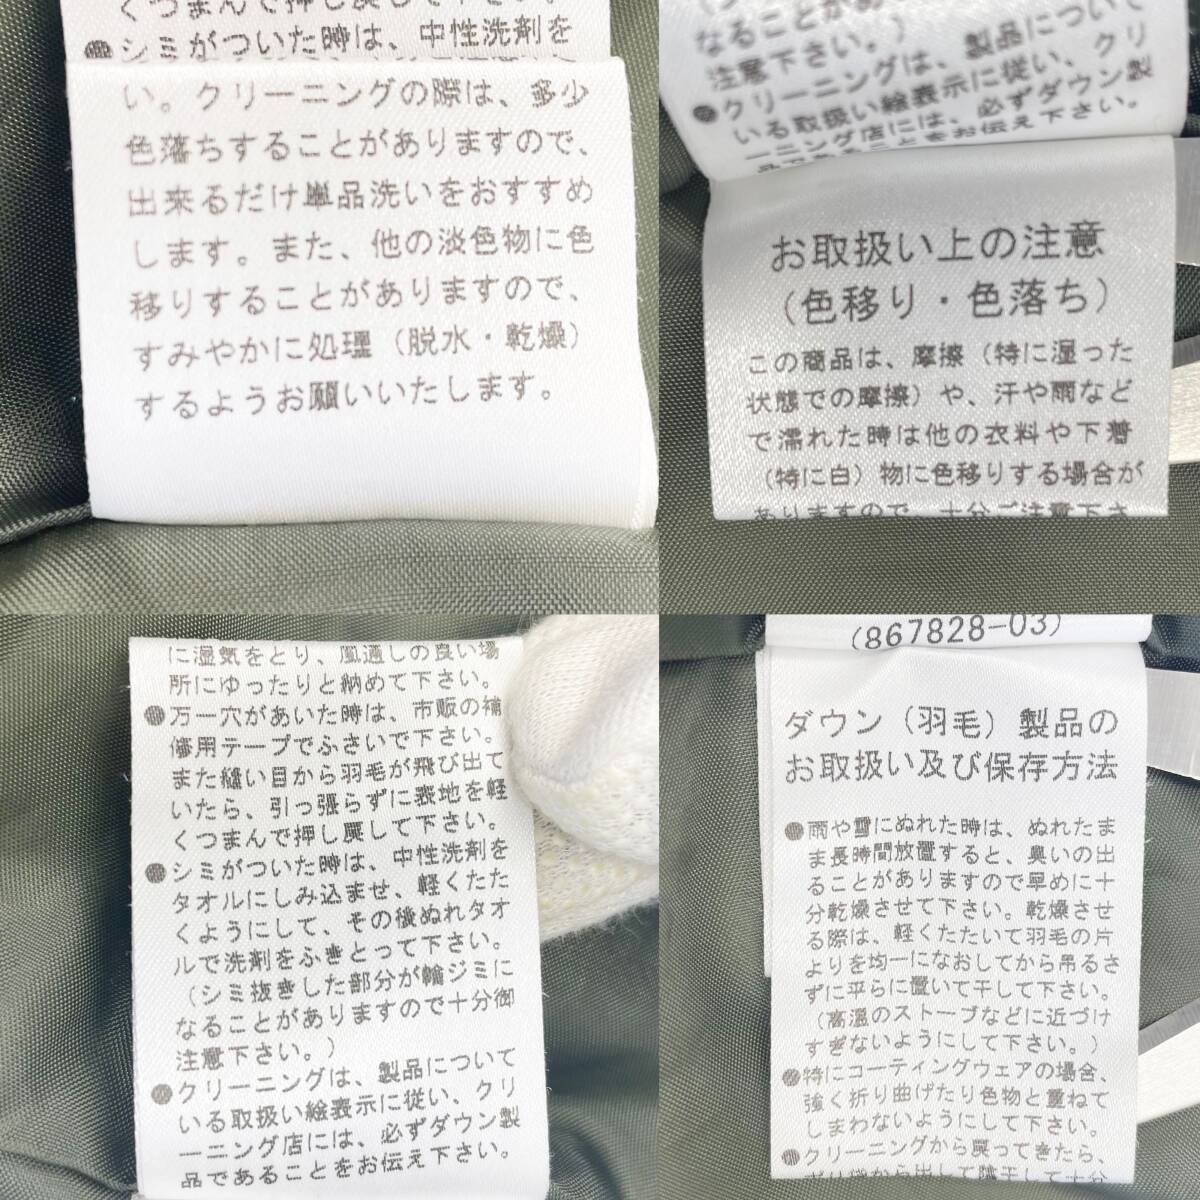 くつまんで押し戻して下さい。
●シミがついた時は、中性洗剤を
い。クリーニングの際は、多少
色落ちすることがありますので、
出来るだけ単品洗いをおすすめ
します。また、他の淡色物に色
移りすることがありますので、
すみやかに処理（脱水・乾燥）
するようお願いいたします。
なることがあ
注意下さい。）
●クリーニングは、製品について
いる取扱い絵表示に従い、クリ
ーニング店には、必ずダウン製
品であることをお伝え下さい。
お取扱い上の注意
（色移り・色落ち）
この商品は、摩擦（特に湿った
状態での摩擦）や、汗や雨など
で濡れた時は他の衣料や下着
（特に白）物に色移りする場合が
ありますので、十分ご注意下さ
に湿気をとり、風通しの良い場
所にゆったりと納めて下さい。
●万一穴があいた時は、市販の補
修用テープでふさいで下さい。
また縫い目から羽毛が飛び出て
いたら、引っ張らずに表地を軽
くつまんで押し戻して下さい。
●シミがついた時は、中性洗剤を
タオルにしみ込ませ、軽くたた
くようにして、その後ぬれタオ
ルで洗剤をふきとって下さい。
（シミ抜きした部分が輪ジミに
なることがありますので十分御
注意下さい。）
●クリーニングは、製品について
いる取扱い絵表示に従い、クリ
ーニング店には、必ずダウン製
品であることをお伝え下さい。
(867828-03)
ダウン（羽毛）製品の
お取扱い及び保存方法
●雨や雪にぬれた時は、ぬれたま
ま長時間放置すると、臭いの出
ることがありますので早めに十
分乾燥させて下さい。乾燥させ
る際は、軽くたたいて羽毛の片
よりを均一になおしてから吊るさ
ずに平らに置いて干して下さい。
（高温のストーブなどに近づけ
すぎないようにして下さい。）
●特にコーティングウェアの場合、
強く折り曲げたり色物と重ねて
しまわないようにして下さい。
●クリーニングから戻ってきたら、
ポリ袋から出して陰干して十分